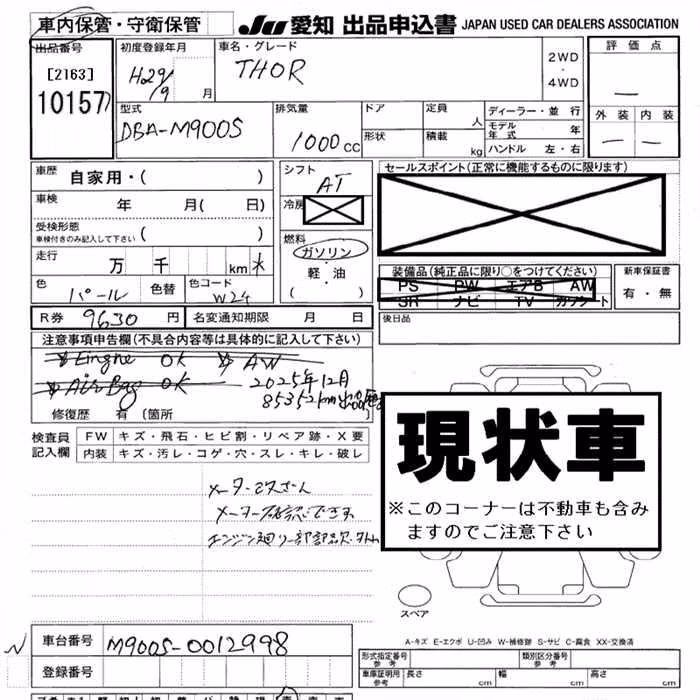 車内保管・守衛保管
JU 愛知 出品申込書 JAPAN USED CAR DEALERS ASSOCIATION
出品番号
[2163]
10157
初度登録年月
H29/9 月
車名・グレード
THOR
2WD
・
4WD
評価点
―
外装 内装
― ―
型式
DBA-M900S
排気量
1000cc
ドア
形状
定員 人
積載 kg
ディーラー・並行
モデル年式 年
ハンドル 左・右
車歴 自家用・( )
車検 年 月( 日)
受検形態
車検付きのみ記入して下さい ( )
走行 万 千 km *
色 パール 色替
色コード W24
シフト AT
冷房
燃料
ガソリン
・
軽・油
( )
セールスポイント(正常に機能するものに限ります)
装備品(純正品に限り○をつけてください)
PS PW エアB AW
SR ナビ TV カワシート
新車保証書
有・無
R券 9630 円 名変通知期限 月 日
後日品
注意事項申告欄(不具合内容等は具体的に記入して下さい)
Eingne OK AW
Air Bag OK 2025年12月
85352km
修復歴 有 (箇所
検査員記入欄
FW キズ・飛石・ヒビ割・リペア跡・X要
内装 キズ・汚レ・コゲ・穴・スレ・キレ・破レ
現状車
※このコーナーは不動車も含み
ますのでご注意下さい
スペア
A-キズ E-エクボ U-凹み W-補修跡 S-サビ C-腐食 XX-交換済
車台番号 M900S-0012998
登録番号
形式指定番号 参考
類別区分番号 参考
車庫証明用 参考 長さ 幅 高さ